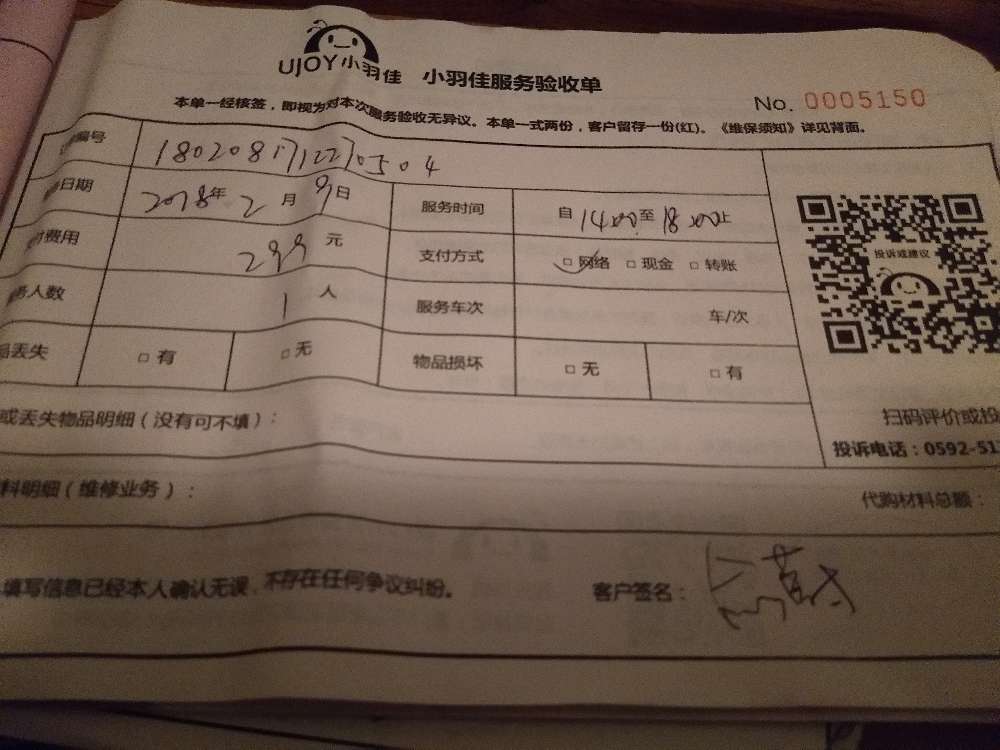 UJOY小羽佳 小羽佳服务验收单
No. 0005150
本单一经核签，即视为对本次服务验收无异议。本单一式两份，客户留存一份(红)。《维保须知》详见背面。
编号 1802081712270504
日期 2018年 2 月 9 日 服务时间 自 14:00 至 18:00 止
费用 299 元 支付方式 □ 网络 □ 现金 □ 转账
务人数 1 人 服务车次 车/次
品丢失 □ 有 □ 无 物品损坏 □ 无 □ 有
投诉或建议
或丢失物品明细（没有可不填）：
扫码评价或投
投诉电话：0592-51
料明细（维修业务）： 代购材料总额：
填写信息已经本人确认无误，不存在任何争议纠纷。 客户签名：